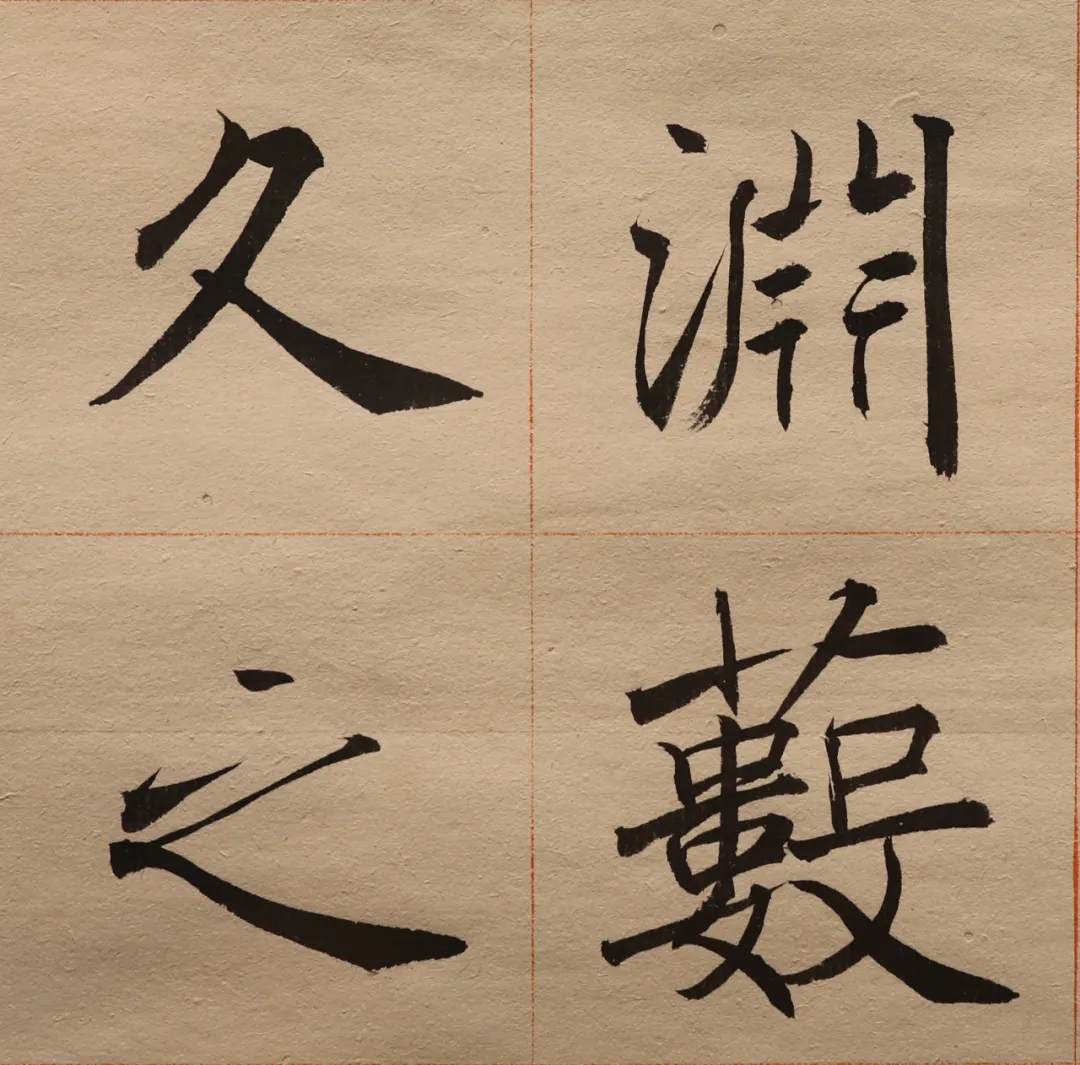 淵藪
久之